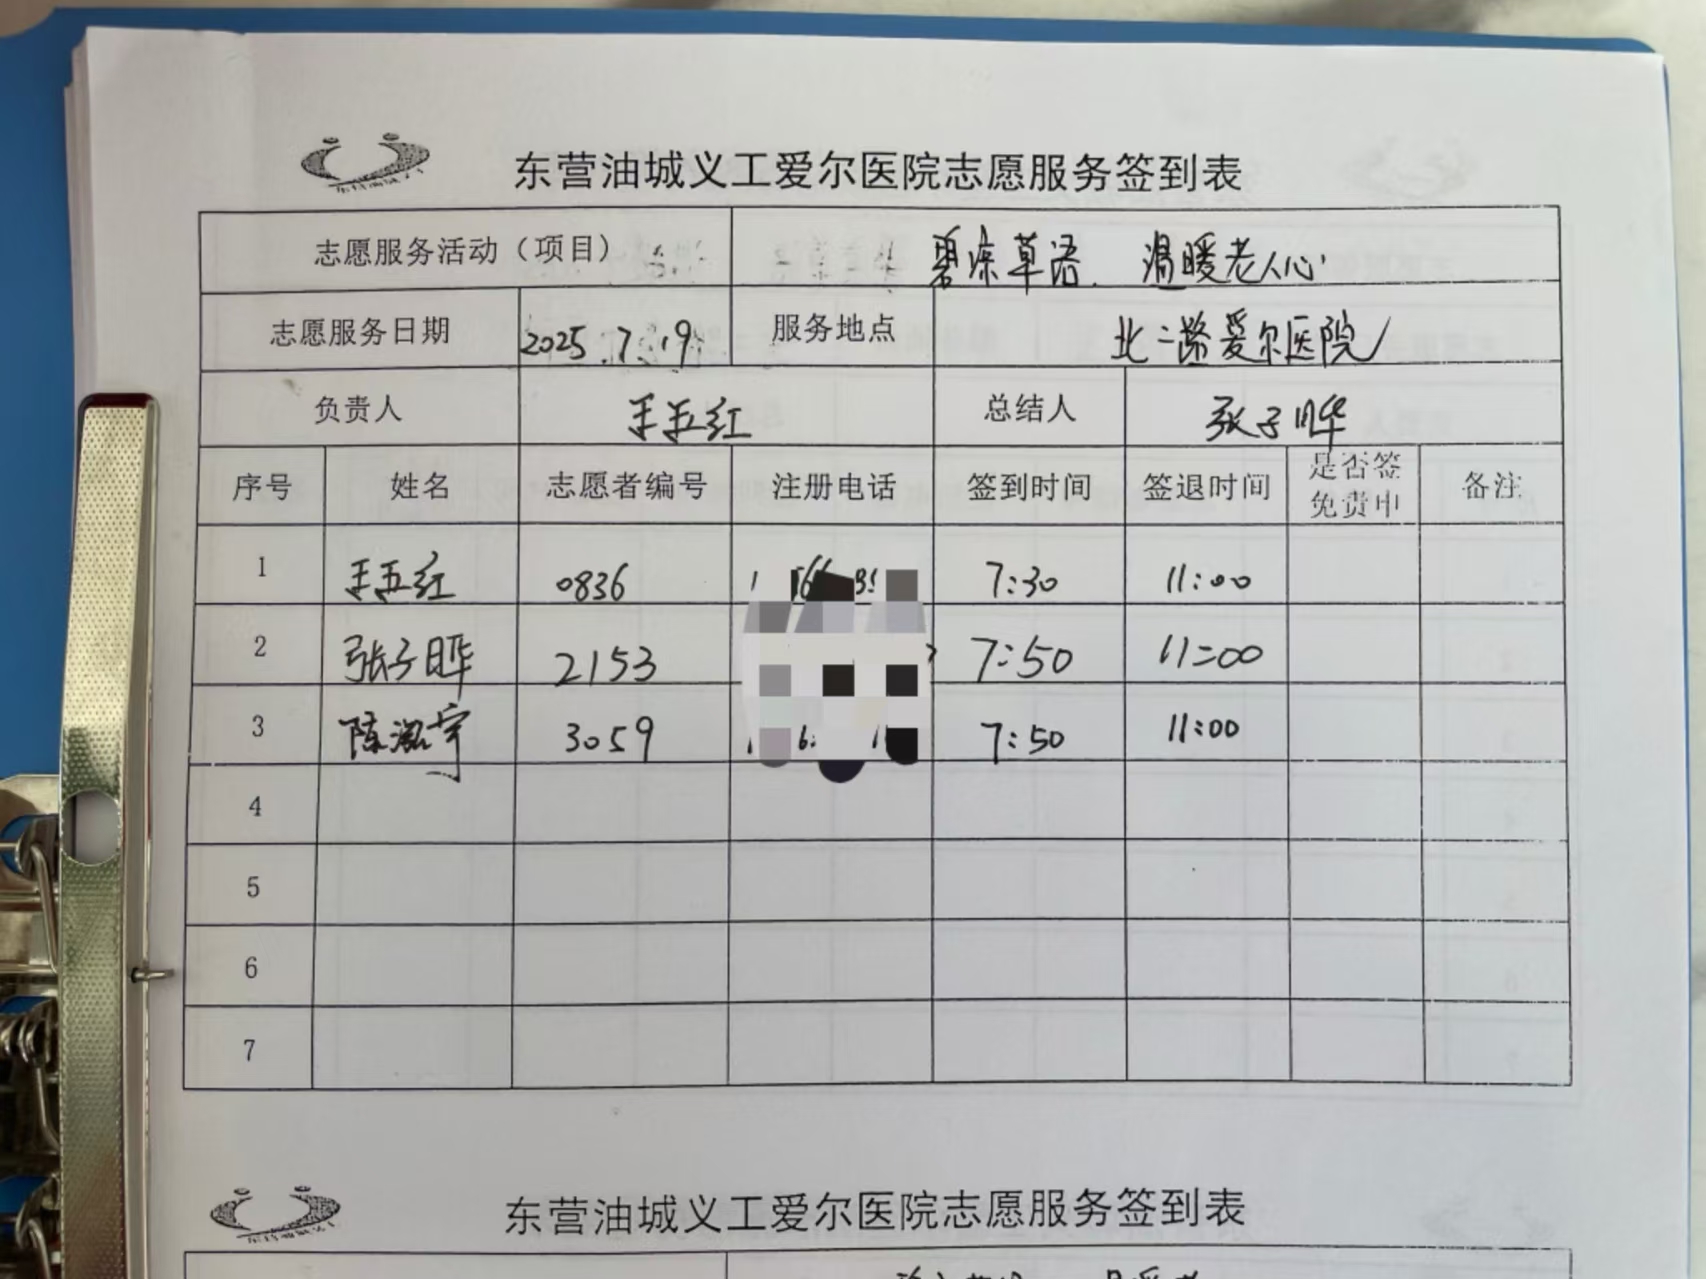 东营油城义工爱尔医院志愿服务签到表
志愿服务活动（项目） 碧凉草语 温暖老人心
志愿服务日期 2025.7.19 服务地点 北二路爱尔医院
负责人 王五红 总结人 张子晔
序号 姓名 志愿者编号 注册电话 签到时间 签退时间 是否签免责申 备注
1 王五红 0836 7:30 11:00
2 张子晔 2153 7:50 11:00
3 陈泓宇 3059 7:50 11:00
4
5
6
7
东营油城义工爱尔医院志愿服务签到表